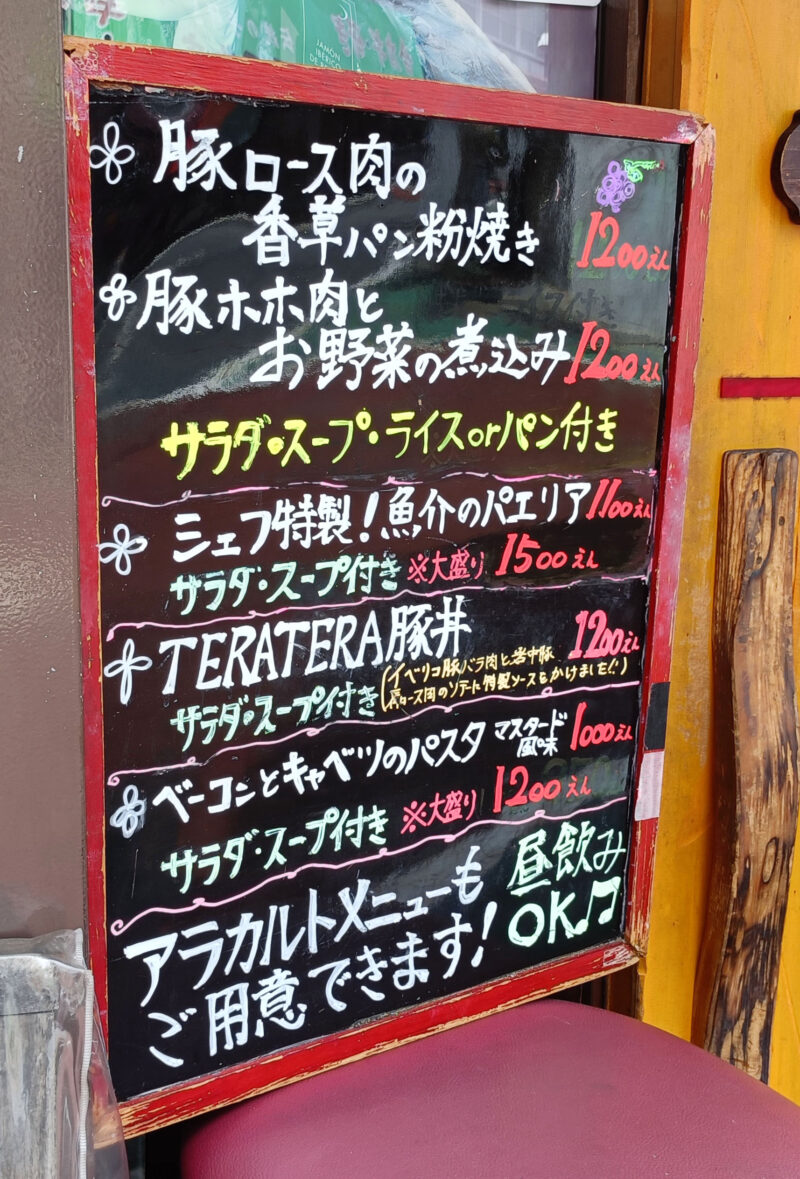 JAMÓN
豚ロース肉の
香草パン粉焼き 1200えん
豚ホホ肉と
お野菜の煮込み 1200えん
サラダ・スープ・ライスorパン付き
シェフ特製!魚介のパエリア 1100えん
サラダ・スープ付き ※大盛り 1500えん
TERATERA豚丼 1200えん
サラダ・スープ付き (イベリコ豚バラ肉と岩中豚
肩ロース肉のソテーに特製ソースをかけました!!)
ベーコンとキャベツのパスタ マスタード風味 1000えん
サラダ・スープ付き ※大盛り 1200えん
アラカルトメニューも
ご用意できます!
昼飲み
OK♫